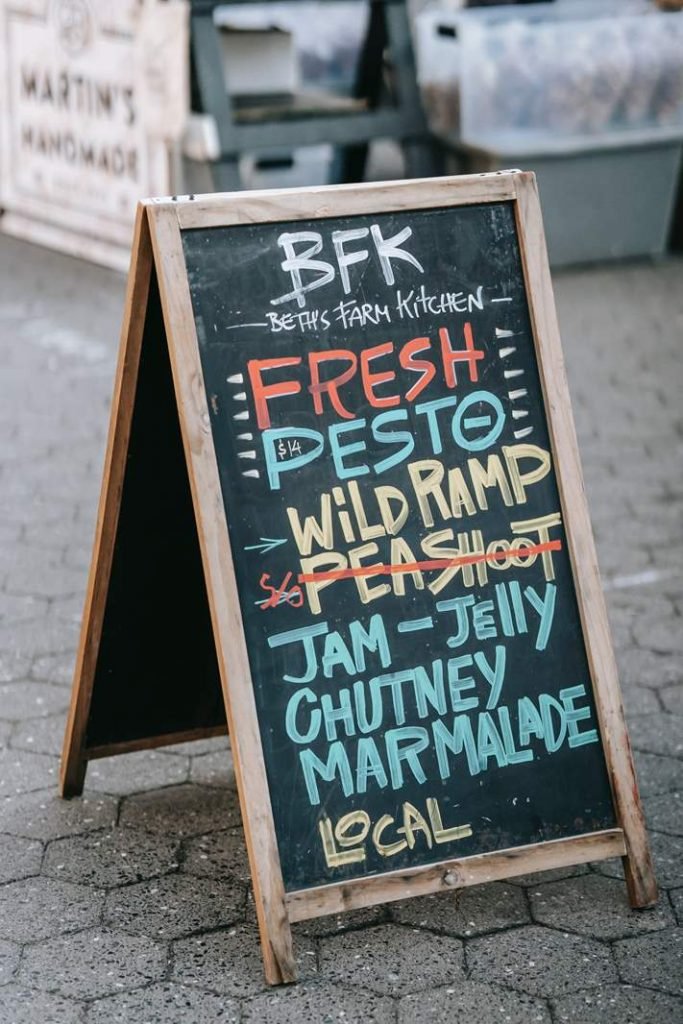 MARTIN'S
HANDMADE
BFK
— BETH'S FARM KITCHEN —
FRESH
$14 PESTO
→ WILD RAMP
S/O PEA SHOOT
JAM - JELLY
CHUTNEY
MARMALADE
LOCAL